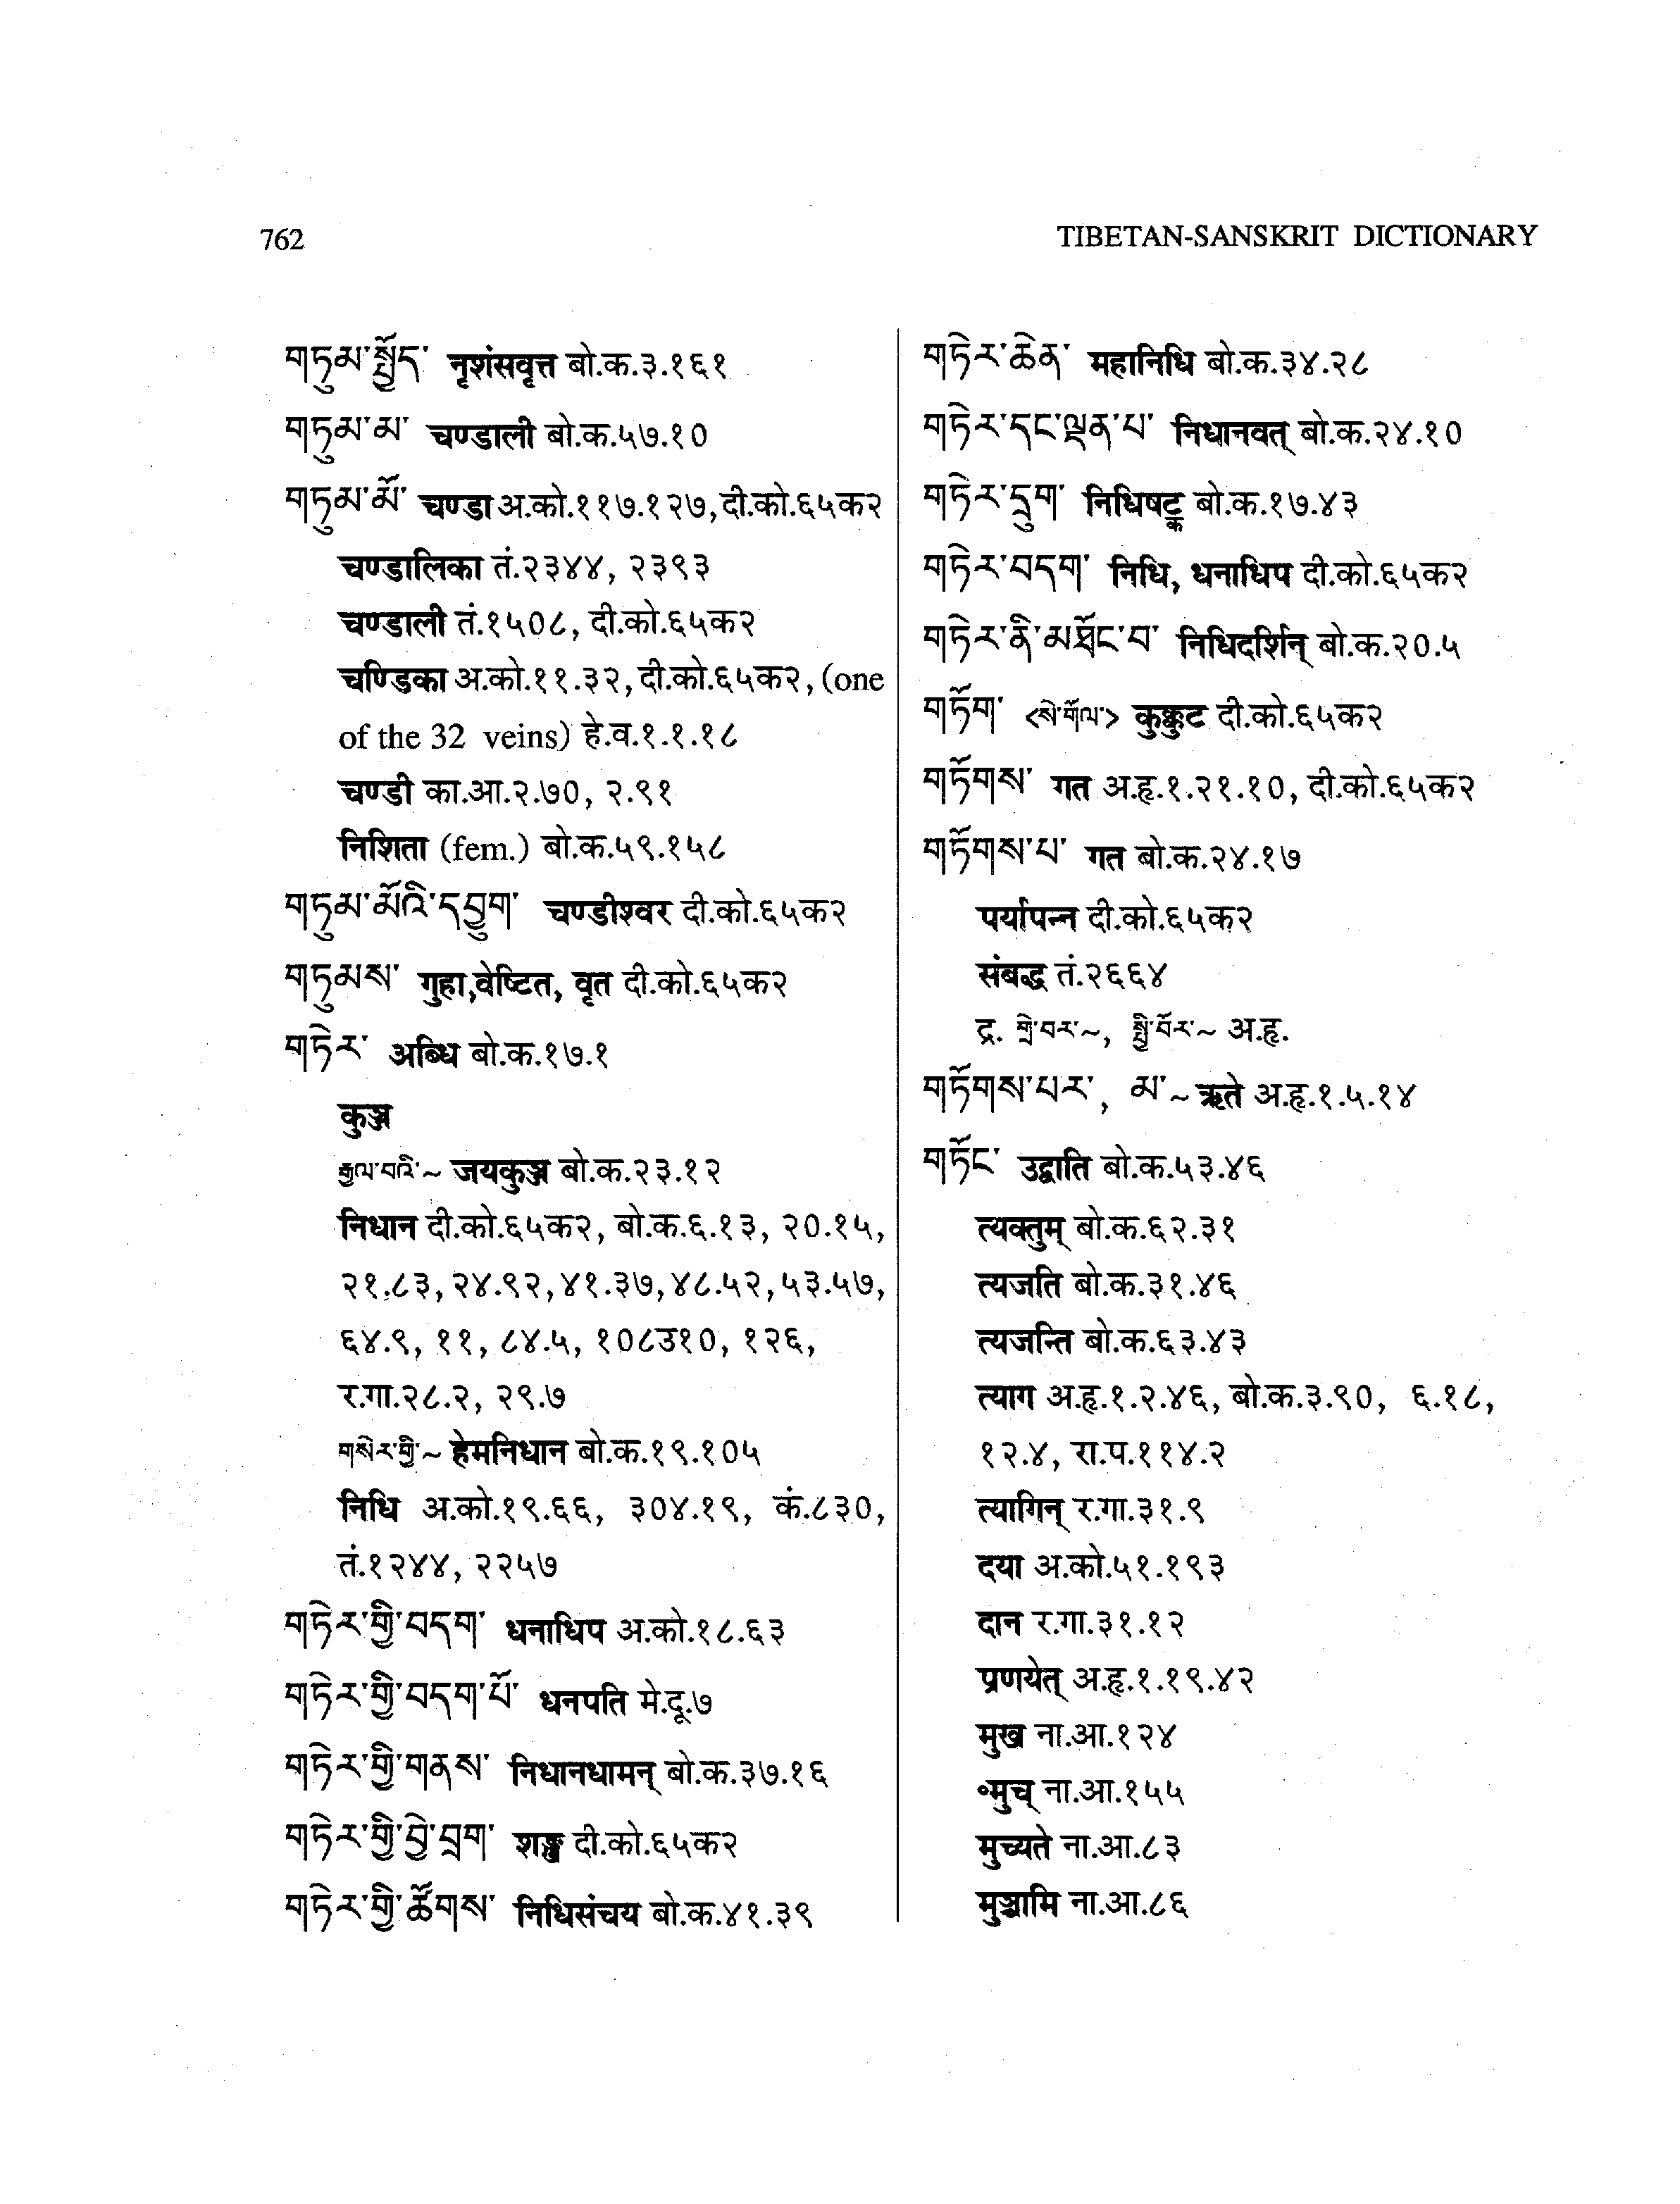 762
TIBETAN-SANSKRIT DICTIONARY
གཏུམ་སྤྱོད་ नृशंसवृत्त बो.क.३.१६१
གཏུམ་མ་ चण्डाली बो.क.५७.१०
གཏུམ་མོ་ चण्डा अ.को.११७.१२७, दी.को.६५क२
चण्डालिका तं.२३४४, २३९३
चण्डाली तं.१५०८, दी.को.६५क२
चण्डिका अ.को.११.३२, दी.को.६५क२, (one
of the 32 veins) हे.व.१.१.१८
चण्डी का.आ.२.७०, २.९१
निशिता (fem.) बो.क.५९.१५८
གཏུམ་མོའི་དབྱུག་ चण्डीश्वर दी.को.६५क२
གཏུམས་ गुहा,वेष्टित, वृत दी.को.६५क२
གཏེར་ अब्धि बो.क.१७.१
कुञ्ज
རྒྱལ་བའི་~ जयकुञ्ज बो.क.२३.१२
निधान दी.को.६५क२, बो.क.६.१३, २०.१५,
२१.८३, २४.९२, ४१.३७, ४८.५२, ५३.५७,
६४.९, ११, ८४.५, १०८उ१०, १२६,
र.गा.२८.२, २९.७
གསེར་གྱི་~ हेमनिधान बो.क.१९.१०५
निधि अ.को.१९.६६, ३०४.१९, कं.८३०,
तं.१२४४, २२५७
གཏེར་གྱི་བདག་ धनाधिप अ.को.१८.६३
གཏེར་གྱི་བདག་པོ་ धनपति मे.दू.७
གཏེར་གྱི་གནས་ निधानधामन् बो.क.३७.१६
གཏེར་གྱི་བྱེ་བྲག་ शङ्ख दी.को.६५क२
གཏེར་གྱི་ཚོགས་ निधिसंचय बो.क.४१.३९
གཏེར་ཆེན་ महानिधि बो.क.३४.२८
གཏེར་དང་ལྡན་པ་ निधानवत् बो.क.२४.१०
གཏེར་དྲུག་ निधिषट्क बो.क.१७.४३
གཏེར་བདག་ निधि, धनाधिप दी.को.६५क२
གཏེར་ནི་མཐོང་བ་ निधिदर्शिन् बो.क.२०.५
གཏོག་ <སེ་གོལ་> कुक्कुट दी.को.६५क२
གཏོགས་ गत अ.हृ.१.२१.१०, दी.को.६५क२
གཏོགས་པ་ गत बो.क.२४.१७
पर्यापन्न दी.को.६५क२
संबद्ध तं.२६६४
द्र. གྲེ་བར་~, སྤྱི་བོར་~ अ.हृ.
གཏོགས་པར་, མ་~ ऋते अ.हृ.१.५.१४
གཏོང་ उद्वाति बो.क.५३.४६
त्यक्तुम् बो.क.६२.३१
त्यजति बो.क.३१.४६
त्यजन्ति बो.क.६३.४३
त्याग अ.हृ.१.२.४६, बो.क.३.९०, ६.१८,
१२.४, रा.प.११४.२
त्यागिन् र.गा.३१.९
दया अ.को.५१.१९३
दान र.गा.३१.१२
प्रणयेत् अ.हृ.१.१९.४२
मुख ना.आ.१२४
॰मुच् ना.आ.१५५
मुच्यते ना.आ.८३
मुञ्चामि ना.आ.८६